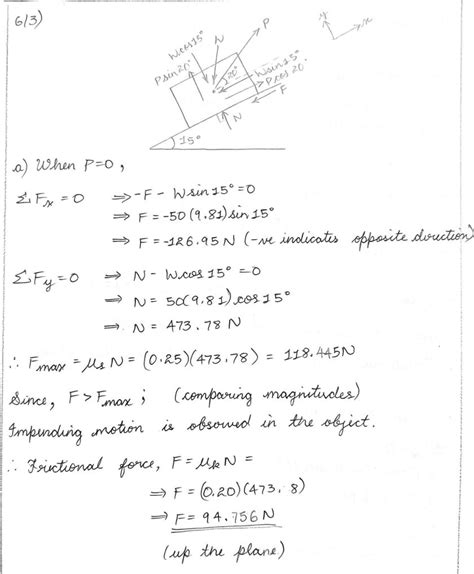 6/3)
y
x
P
N
Wcos15°
Psin20°
20°
Wsin15°
Pcos20°
F
N
15°
a) When P=0,
ΣFx = 0 ⇒ -F - Wsin15° = 0
⇒ F = -50(9.81)sin15°
⇒ F = -126.95 N (-ve indicates opposite direction)
ΣFy = 0 ⇒ N - Wcos15° = 0
⇒ N = 50(9.81).cos15°
⇒ N = 473.78 N
∴ Fmax = μs N = (0.25)(473.78) = 118.445N
Since, F > Fmax ; (comparing magnitudes)
Impending motion is obsorved in the object.
∴ Frictional force, F = μk N =
⇒ F = (0.20)(473. 8)
⇒ F = 94.756 N
(up the plane)